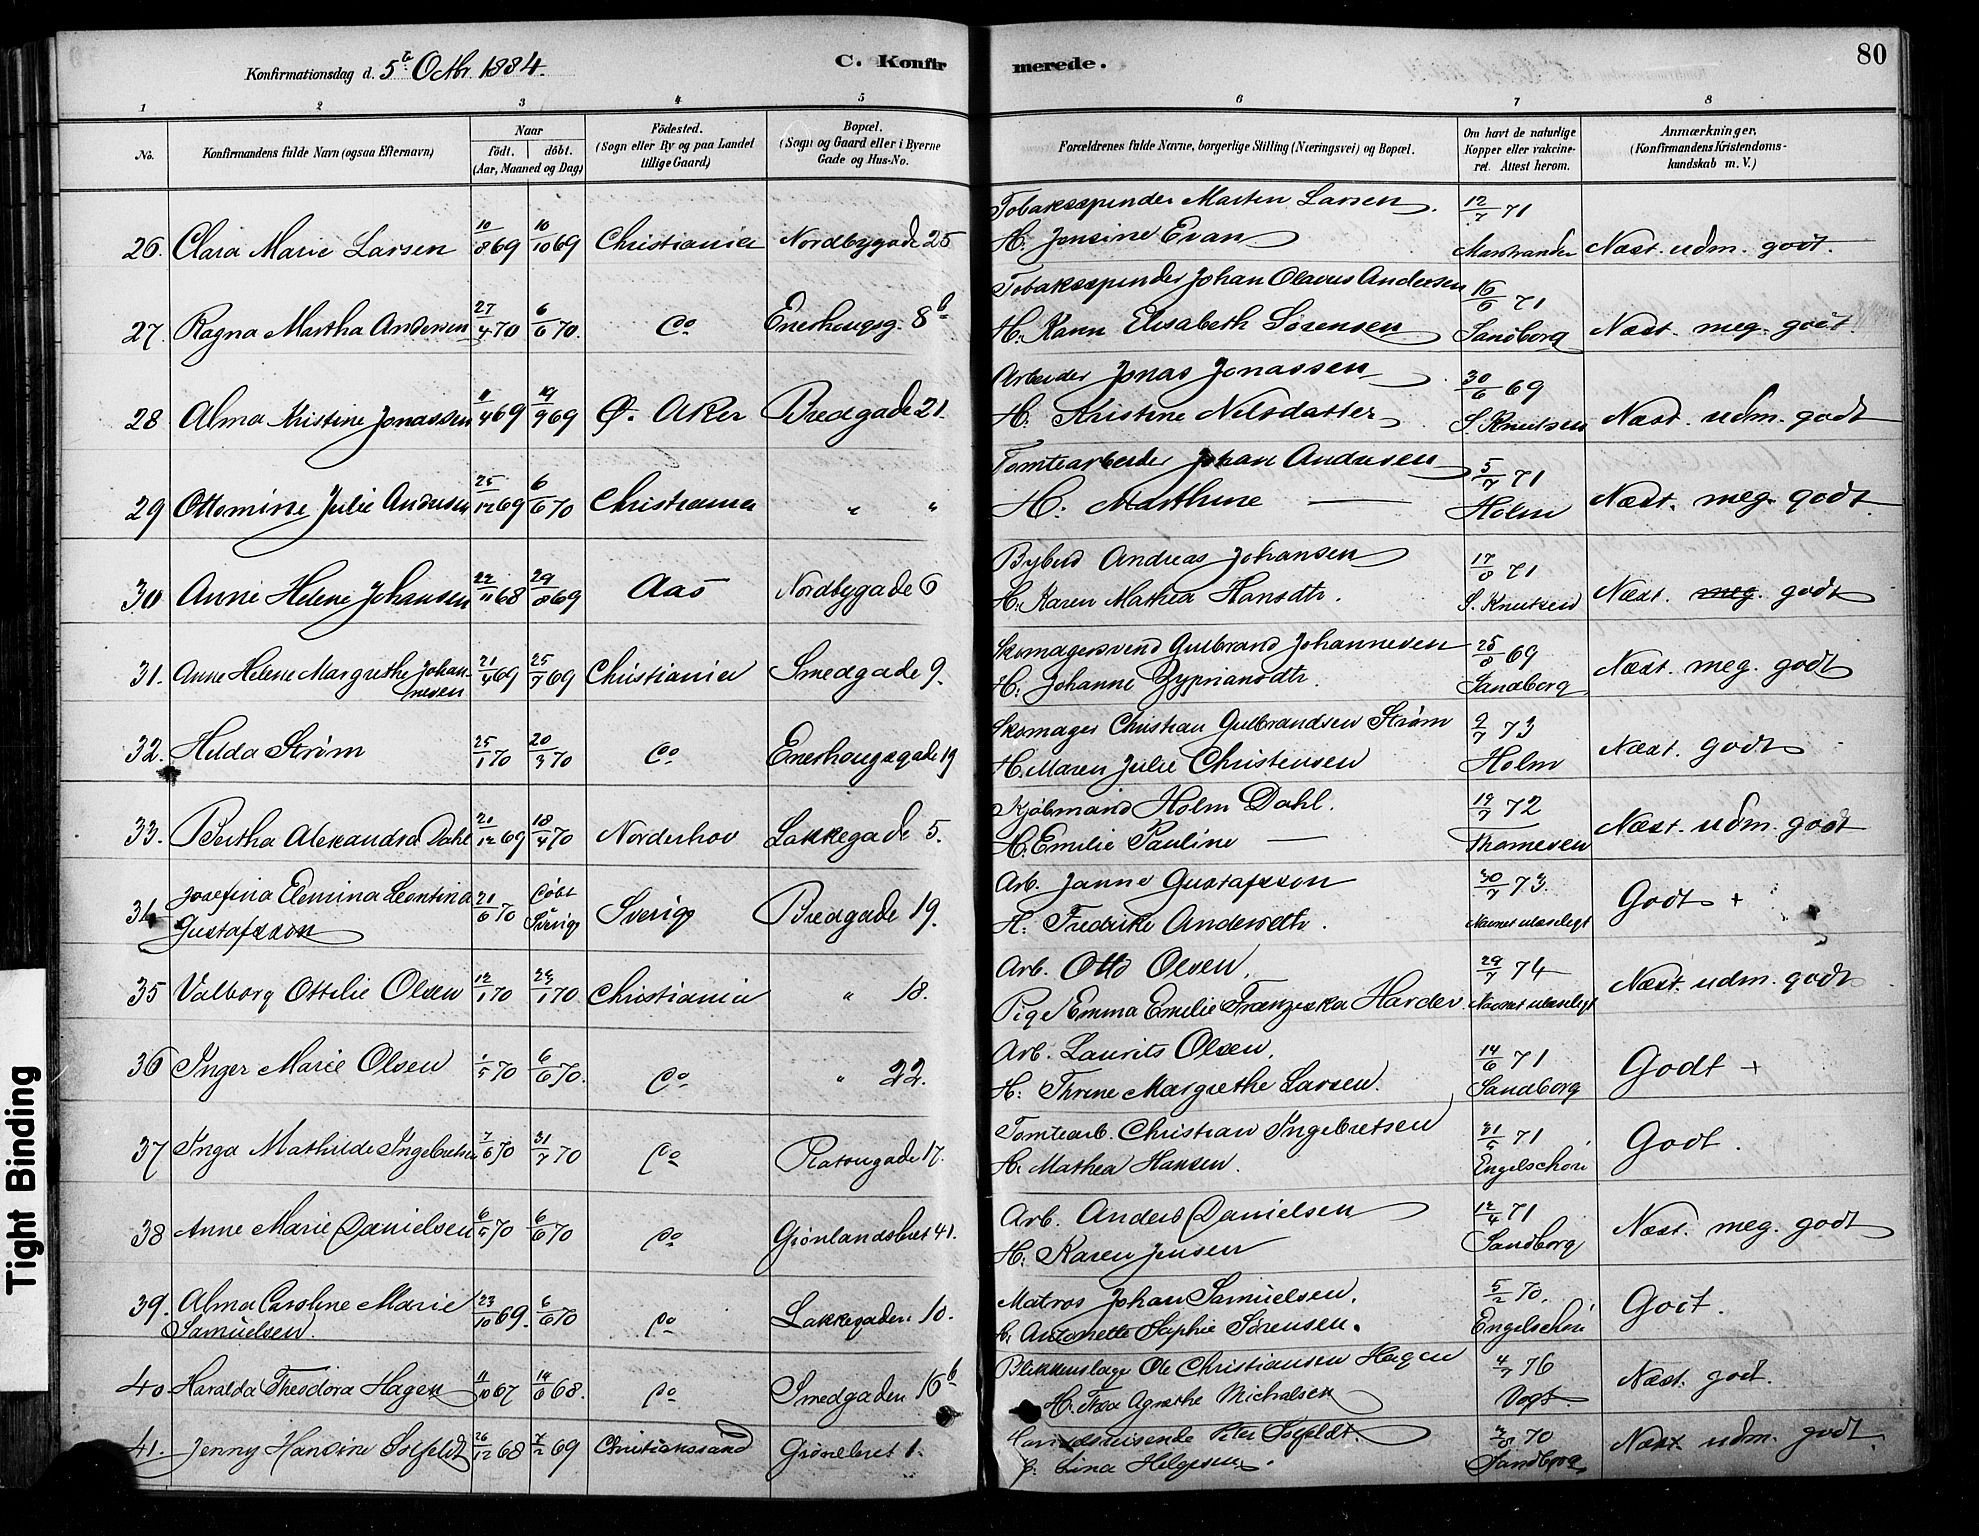 Konfirmationsdag d. 5te Octbr. 1884.
C. Konfirmerede.
80
1 2 3 4 5 6 7 8
No.
Konfirmandens fulde Navn (ogsaa Efternavn)
Naar
født. døbt.
(Aar, Maaned og Dag)
Fødested.
(Sogn eller By og paa Landet
tillige Gaard)
Bopæl.
(Sogn og Gaard eller i Byerne
Gade og Hus-No.
Forældrenes fulde Navne, borgerlige Stilling (Næringsvei) og Bopæl.
Om havt de naturlige
Kopper eller vakcine-
ret. Attest herom.
Anmærkninger,
(Konfirmandens Kristendoms-
kundskab m. V.)
Tobaksspinder Martin Larsen 12/7 71
26. Clara Marie Larsen 10/8 69 10/10 69 Christiania Nordbygade 25 H. Jensine Evan Marstrander Næst. udm. godt.
Tobaksspinder Johan Olavus Andersen 16/6 71
27. Ragna Martha Andersen 27/4 70 6/6 70. Do Enerhougsg. 8b H. Karen Elisabeth Sørensen Sandborg Næst. meg. godt.
Arbeider Jonas Jonassen 30/6 69
28 Alma Kristine Jonassen 11/4 69 19/9 69 Ø. Aker Bredgade 21. H. Kristine Nilsdatter S. Knutsen Næst. udm. godt
Tomtearbeider Johan Andersen 5/7 71
29 Ottomine Julie Andersen 25/12 69 6/6 70 Christiania " " H. Marthine — Holm Næst. meg. godt.
Bybud Andreas Johansen 17/8 71
30 Anne Helene Johansen 22/11 68 29/8 69 Aas Nordbygade 6 H. Karen Mathea Hansdtr. S. Knutsen Næst. meg. godt
Skomagersvend Gulbrand Johannesen 25/8 69
31. Anne Helene Margrethe Johan-
nesen 21/4 69 25/7 69 Christiania Smedgade 9. H. Johanne Zypriansdtr. Sandborg Næst. meg. godt
Skomager Christian Gulbrandsen Strøm 2/7 73
32. Hilda Strøm 25/1 70 20/3 70 Do Enerhougsgade 19 H. Maren Julie Christensen Holm Næst. godt
Kjøbmand Holm Dahl. 19/7 72
33. Bertha Alexandra Dahl 21/12 69 18/4 70 Norderhov Lakkegade 5. H. Emilie Pauline — Thomesen Næst. udm. godt
34 Josefina Elemina Leontina
Gustafsson 21/6 70 Døbt Sverig Sverig Bredgade 19. Arb. Janne Gustafsson 30/7 73.
H. Fredrike Andersdtr. Navnet ulæseligt Godt +
Arb. Otto Olsen. 29/7 74
35 Valborg Ottilie Olsen 12/1 70 23/1 70 Christiania " 18. Pige Emma Emilie Franziska Harder Navnet ulæseligt Næst. udm. godt
Arb. Laurits Olsen. 14/6 71
36 Inger Marie Olsen 1/5 70 6/6 70. Do " 22. H. Thrine Margrethe Larsen. Sandborg Godt +
Tomtearb. Christian Ingebretsen 31/5 71
37 Inga Mathilde Ingebretsen 7/6 70 31/7 70 Do Platougade 17. H. Mathea Hansen. Engelschøn Godt.
Arb. Anders Danielsen 12/4 71
38 Anne Marie Danielsen 6/5 70 6/6 70 Do Grønlandsleret 41. H. Karen Jensen Sandborg Næst. meg. godt
39. Alma Caroline Marie
Samuelsen. 23/10 69. 6/6 70 Do Lakkegaden 10. Matros Johan Samuelsen. 5/2 70.
H. Antonette Sophie Sørensen. Engelschøn Godt.
Blikkenslager Ole Christiansen Hagen 4/7 76
40. Haralda Theodora Hagen 11/10 67 14/6 68. Do Smedgaden 16b H. Thea Agnethe Michalsen Vogt Næst. godt.
Handelsreisende Peter Solfeldt. 70
41. Jenny Hansine Solfeldt 26/12 68 7/2 69 Christianssand Grønleret 1. Lina Helgesen. Sandborg Næst udm. godt
Tight Binding